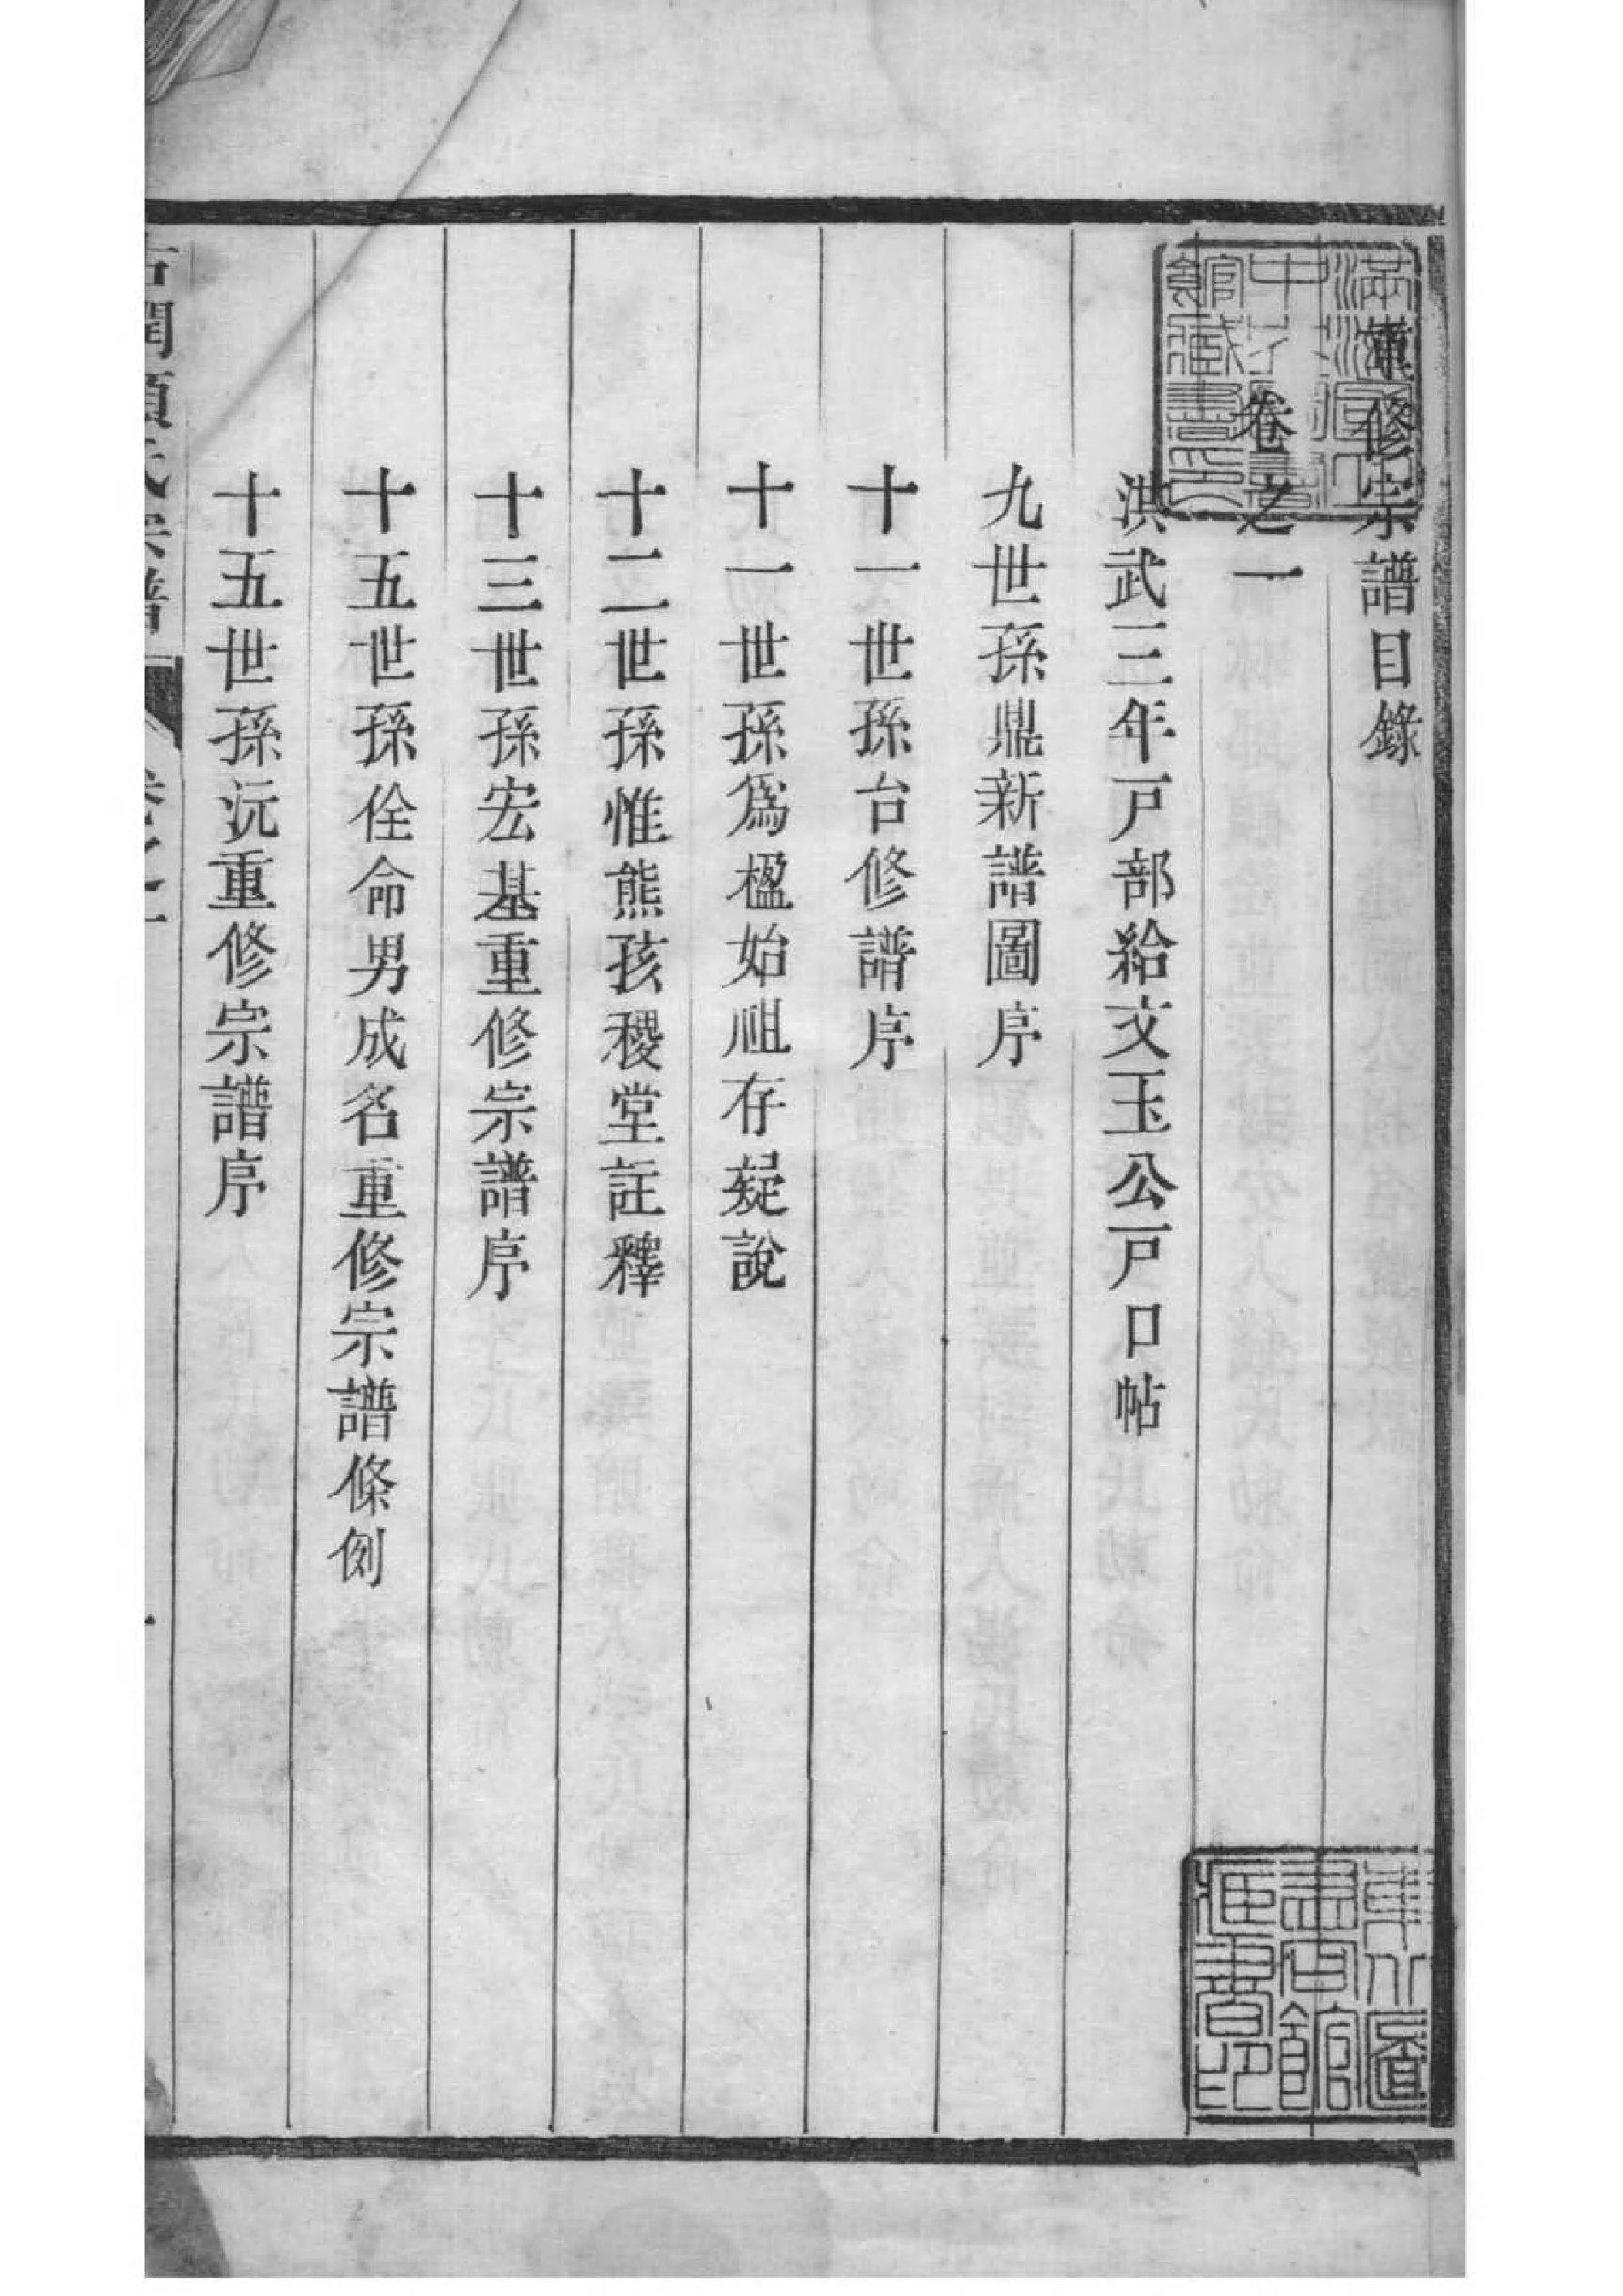 重修宗譜目錄
卷之一
洪武三年戸部給文玉公戸口帖
九世孫鼎新譜圖序
十一世孫台修譜序
十一世孫爲楹始祖存疑說
十二世孫惟熊孩稷堂註釋
十三世孫宏基重修宗譜序
十五世孫佺命男成名重修宗譜條例
十五世孫沅重修宗譜序
圖書館藏書印